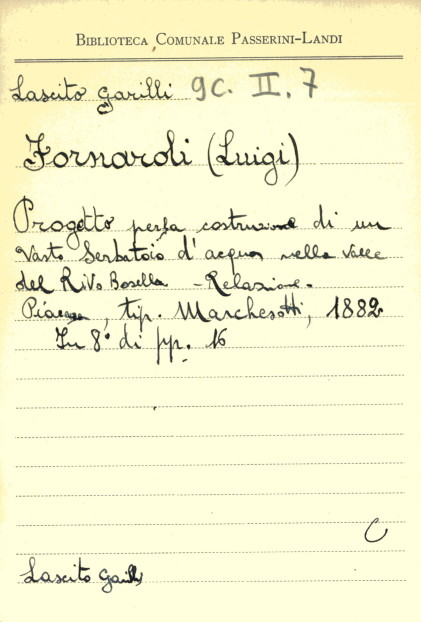 BIBLIOTECA COMUNALE PASSERINI-LANDI
Lascito Garilli 9C. II. 7
Fornaroli (Luigi)
Progetto per la costruzione di un
vasto Serbatoio d'acqua nella valle
del Rivo Bosella - Relazione.
Piacenza, tip. Marchesotti, 1882
In 8° di pp. 16
C
Lascito Garilli